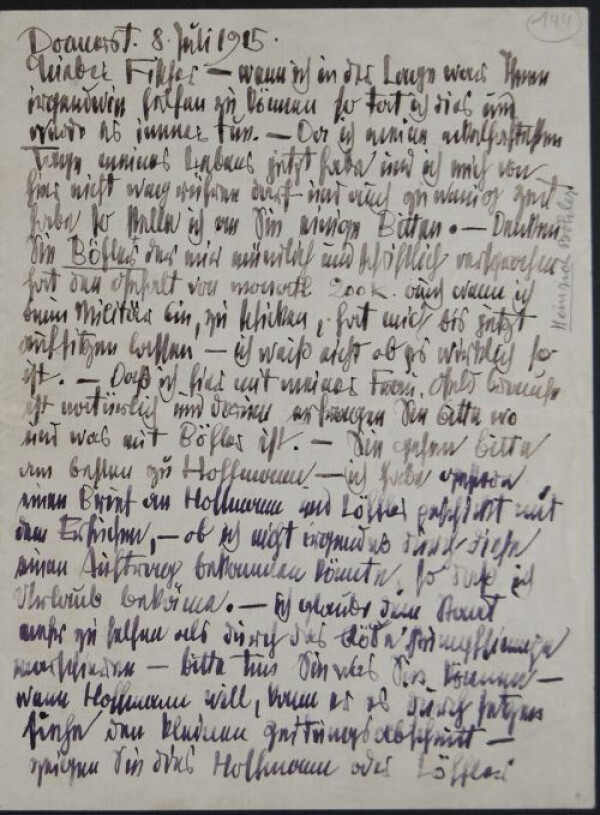 144
Donnerst. 8. Juli 1915.
Lieber Fischer — wenn ich in der Lage war Ihnen
irgendwie helfen zu können so tat ich dies und
würde es immer tun. — Da ich meine ekelhaftesten
Tage meines Lebens jetzt habe und ich mich von
hier nicht weg rühren darf und auch zu wenig Zeit
habe so stelle ich an Sie einige Bitten. — Denken
Sie Böhler der mir mündlich und schriftlich versprochen
hat den Gehalt von monatl. 200 K. auch wenn ich
beim Militär bin, zu schicken, hat mich bis jetzt
aufsitzen lassen — ich weiß nicht ob es wirklich so
ist. — Daß ich hier mit meiner Frau, Geld brauche
ist natürlich und darum erfragen Sie bitte wo
und was mit Böhler ist. — Sie gehen bitte
am besten zu Hoffmann — ich habe
einen Brief an Hoffmann und Löffler geschickt mit
dem Ersuchen, — ob ich nicht irgend durch diese
einen Auftrag bekommen könnte, so daß ich
Urlaub bekäme. — ich glaube dem Staat
mehr zu helfen als durch das blöde
marschieren — bitte tun Sie was Sie können —
wenn Hoffmann will, kann er es durch setzen
siehe den kleinen Zeitungsabschnitt —
zeigen Sie dies Hoffmann oder Löffler
Heinrich Böhler